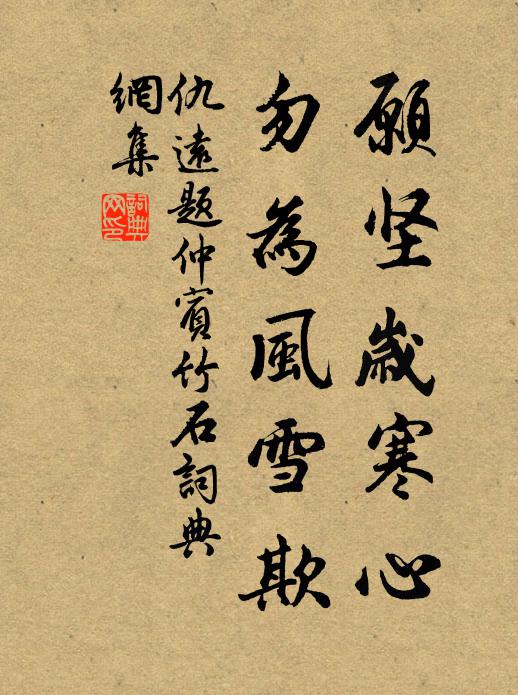 願坚歲寒心
勿為風雪欺
仇遠題仲賓竹石詞典
網集
詞典
网印